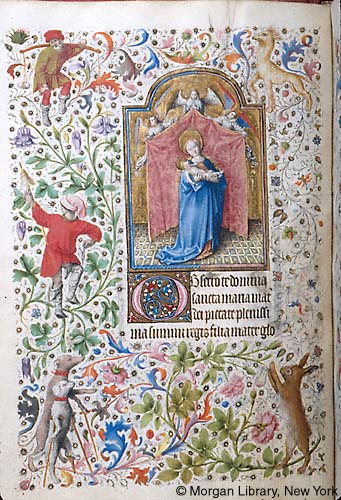 Obsecro te domina
sancta maria mat
dei pietate plenissi
ma summi regis filia mater glo
© Morgan Library, New York